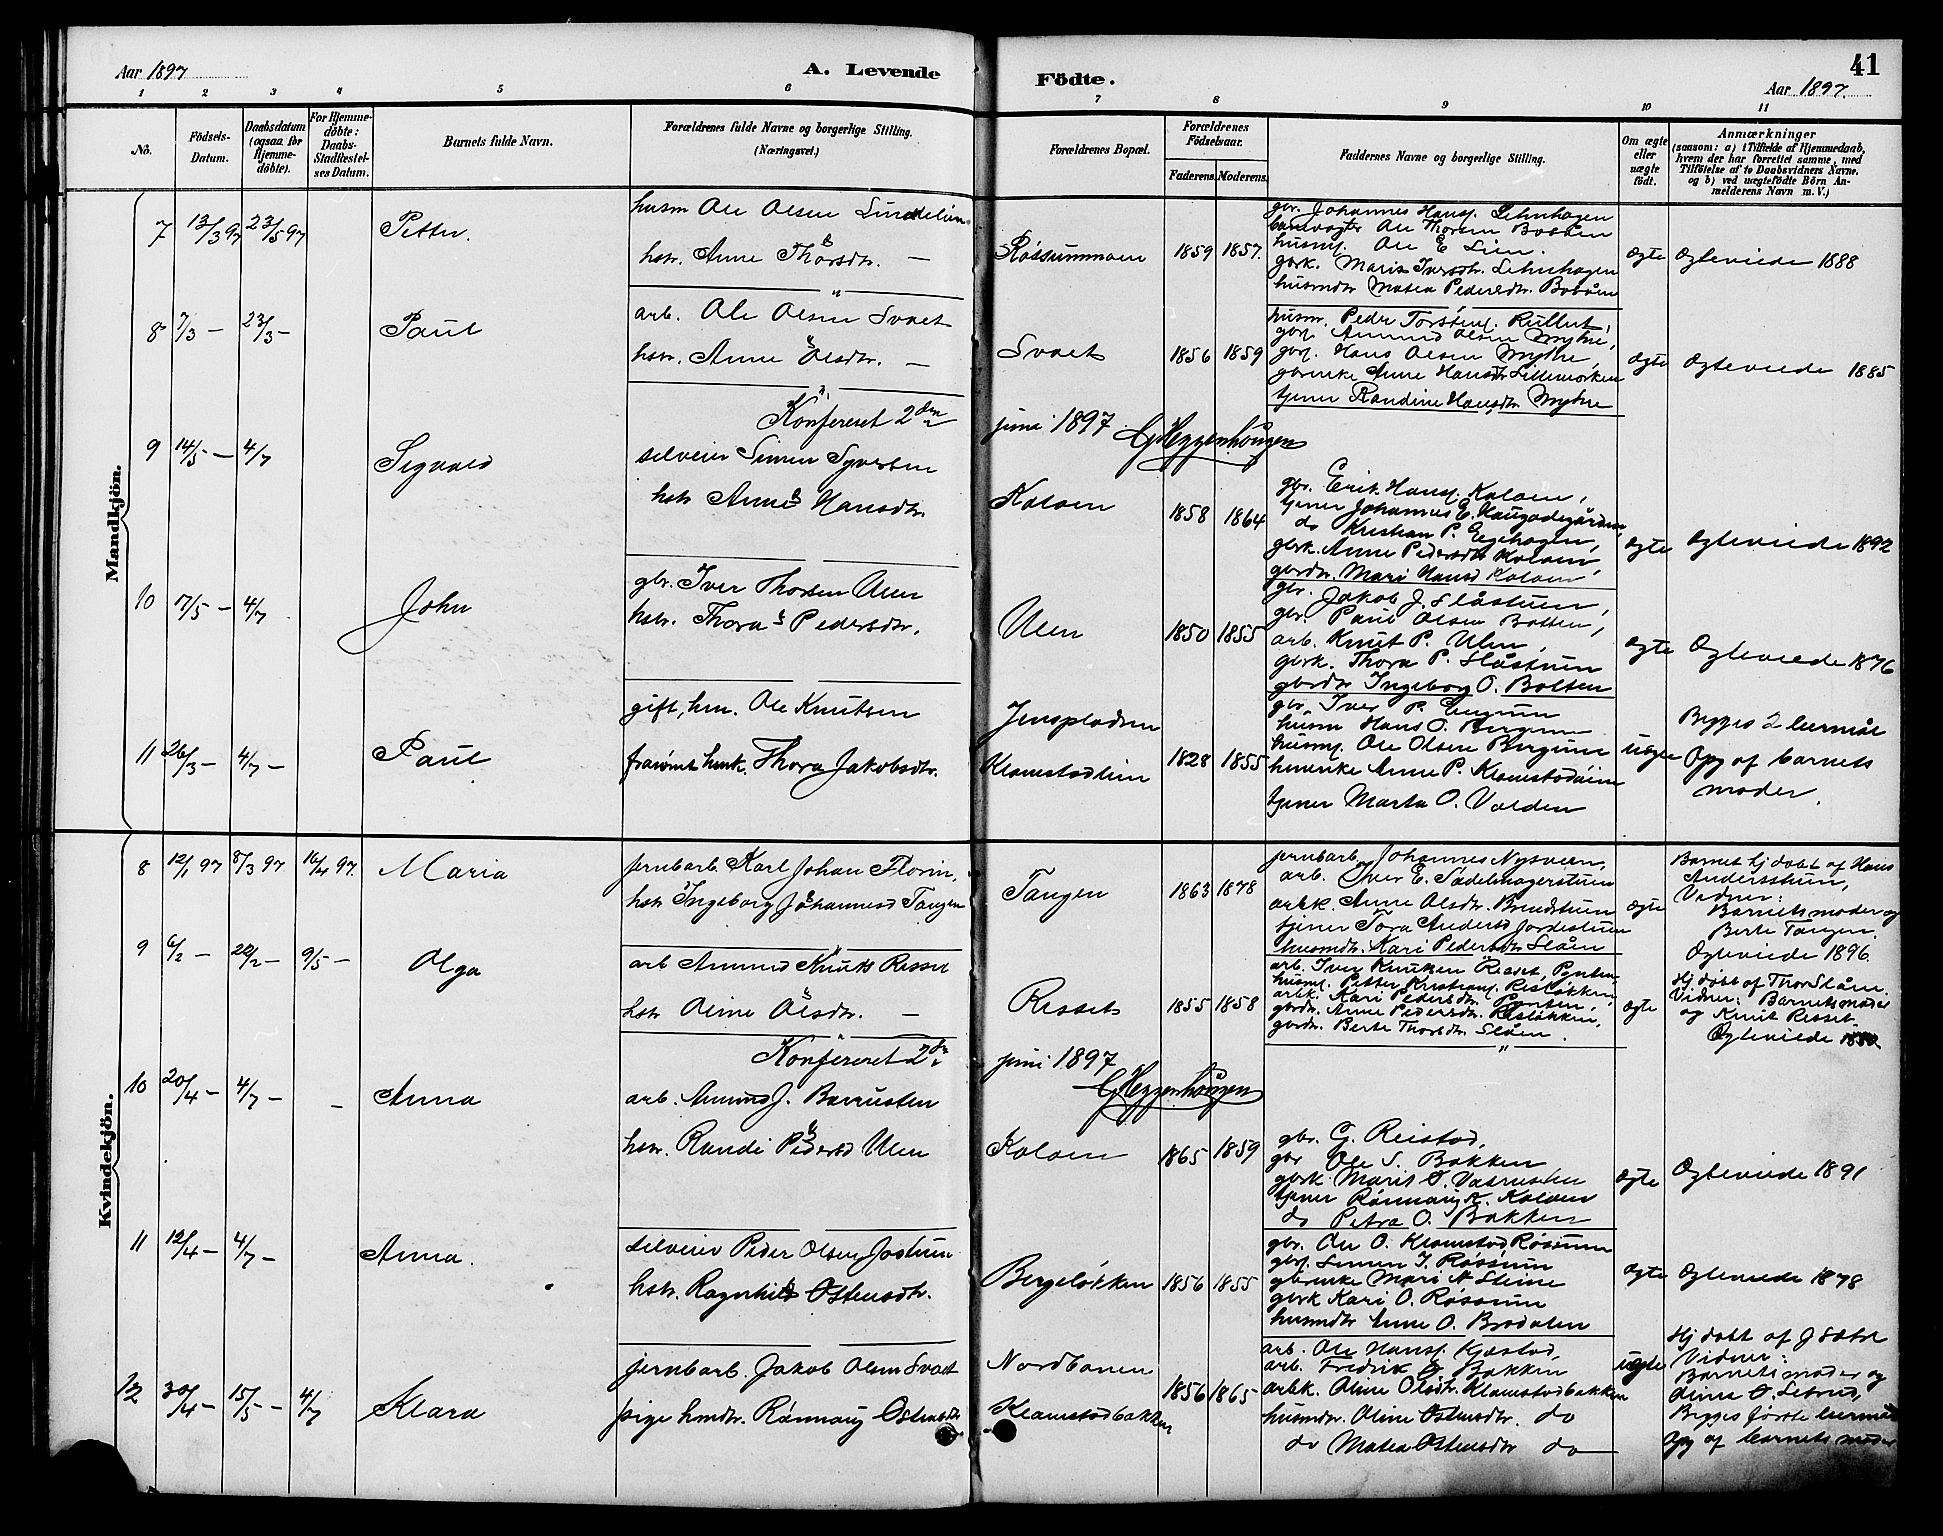 Aar 1897
A. Levende
Födte.
41
Aar 1897.
1 2 3 4 5 6 7 8 9 10 11
No.
Födsels-Datum.
Daabsdatum (ogsaa for Hjemme-döbte).
For Hjemme-döbte: Daabs-Stadfæstel-ses Datum.
Barnets fulde Navn.
Forældrenes fulde Navne og borgerlige Stilling.
(Næringsvei.)
Forældrenes Bopæl.
Forældrenes Födselsaar.
Faderens. Moderens.
Faddernes Navne og borgerlige Stilling.
Om ægte eller uægte födt.
Anmærkninger
(saasom: a) i Tilfælde af Hjemmedaab, hvem der har forrettet samme, med Tilföielse af to Daabsvidners Navne, og b) ved uægtefödte Börn An-melderens Navn m. V.)
Mandkjön.
7 13/3 97 23/5 97 Petter.
husm Ole Olsen
hstr. Anne Thorsdtr. —
Røssummoen 1859 1857.
gbr. Johannes Hans.
Ole Thorsen Bobaæn
husm. Ole E Lien.
gbrk. Marit Iversdtr.
husmdtr Matea Pedersdtr.
ægte Ægteviede 1888
8 7/3 — 23/3 — Paul
arb. Ole Olsen Svaet
hstr. Anne Olsdtr. —
Svaet 1856 1859
husm. Peder Torstens. Rullut,
gbs. Amund Olsen Myhre,
gbs. Hans Olsen Myhre,
gbrenke Anne Hansdtr Lillemorken
tjener Randine Hansdtr Myhre
ægte Ægteviede 1885
Konfereret 2den juni 1897 G Heggenhougen
9 14/5 — 4/7 Sigvald
selveier Simen Syversen
hstr Anne Hansdtr
Koloen 1858 1864
gbr. Erik Hans. Koloen,
tjener Johannes E. Haugadegården,
do Kristian P. Engehagen,
gbrk. Anne Pedersdtr Koloen,
gbrdtr. Mari Hansd Koloen,
ægte Ægteviede 1892
10 7/5 — 4/7 John
gbr. Iver Thorsen Ulen
hstr. Thora Pedersdtr.
Ulen 1850 1855
gbr. Jakob J. Slåstuen,
gbr. Paul Olsen Bolten,
arb. Knut P. Ulen,
gbrk. Thora P. Slåstuen
gbrdtr Ingeborg O. Bolten
ægte Ægteviede 1876
11 26/3 — 4/7 — Paul
gift, hm. Ole Knutsen
Thora Jakobsdtr.
Jensplodsen
Klomstadlien 1828 1855
gbr. Iver P.
husm Hans O. Bergum
husm. Ole Olsen Bergum
Anne P.
tjener Marta O. Volden
uægte
Begges 2 leiermål
Opg af barnets
moder.
Kvindekjön.
8 12/1 97 8/3 97 16/4 97. Maria
jernbarb. Karl Johan Florin,
hstr Ingeborg Johannesd Tangen
Tangen 1863 1878
jernbarb. Johannes Nysveen,
arb. Iver E. Sadelmagerstuen
arbk. Anne Olsdtr. Brendstuen
tjener Tora Andersd Jordestuen
husmdtr. Kari Pedersdtr Slåen
ægte
Barnet hj døbt af Hans
Andersstuen,
Vidner:
Barnets moder og
Berte Tangen.
Ægteviede 1896
9 6/2 — 20/2 — 9/5 — Olga
arb Amund Knuts Risset
hstr Oline Olsdtr. —
Risset 1855 1858
arb. Iver Knutsen Risset,
husm. Petter Kristians. Risløkken,
arbk. Kari Pedersdtr.
gbrdtr. Anne Pedersdtr. Risløkken,
gbrdtr. Berte Thorsdtr. Slåen.
ægte
Hj døbt af Thor Slåen.
Vidner: Barnets moder
og Knut Risset.
Ægteviede 1880.
Konfereret 2den juni 1897
G Heggenhougen
10 20/4 — 4/7 — — Anna
arb. Amund J. Barrusten
hstr. Randi Pedersd Ulen
Koloen 1865 1859
gbr. G. Reistad,
gbr Ole S. Bakken
gbrk. Marit O.
tjener Rønnaug K. Koloen
do Petra O. Bakken
ægte Ægteviede 1891
11 12/4 — 4/7 — Anna.
selveier Peder Olsen Jostuen
hstr. Ragnhild Ostensdtr.
Bergeløkken 1856 1855
gbr. Ole O. Klomstad, Røssum
gbs. Simen I. Røssum
gbrenke Mari N Steine
gbrk Kari O. Røssum
husmdtr Anne O. Brodalen
ægte Ægteviede 1878
12 30/4 — 15/5 — 4/7 Klara
jernbarb. Jakob Olsen Svaet
pige hmdtr. Rønnaug Ostensdtr
Nordbanen
Klomstadbakken 1856 1865
arb. Ole Hans. Kjæstad,
arb. Fredrik O. Bakken
arbk. Oline Olsdtr. Klomstadbakken
husmdtr. Oline Ostensdtr. do
do Matea Ostensdtr do —
uægte
Hj døbt af J Sæbø
Vidner:
Barnets moder og
Begges første leiermål
opg af barnets moder